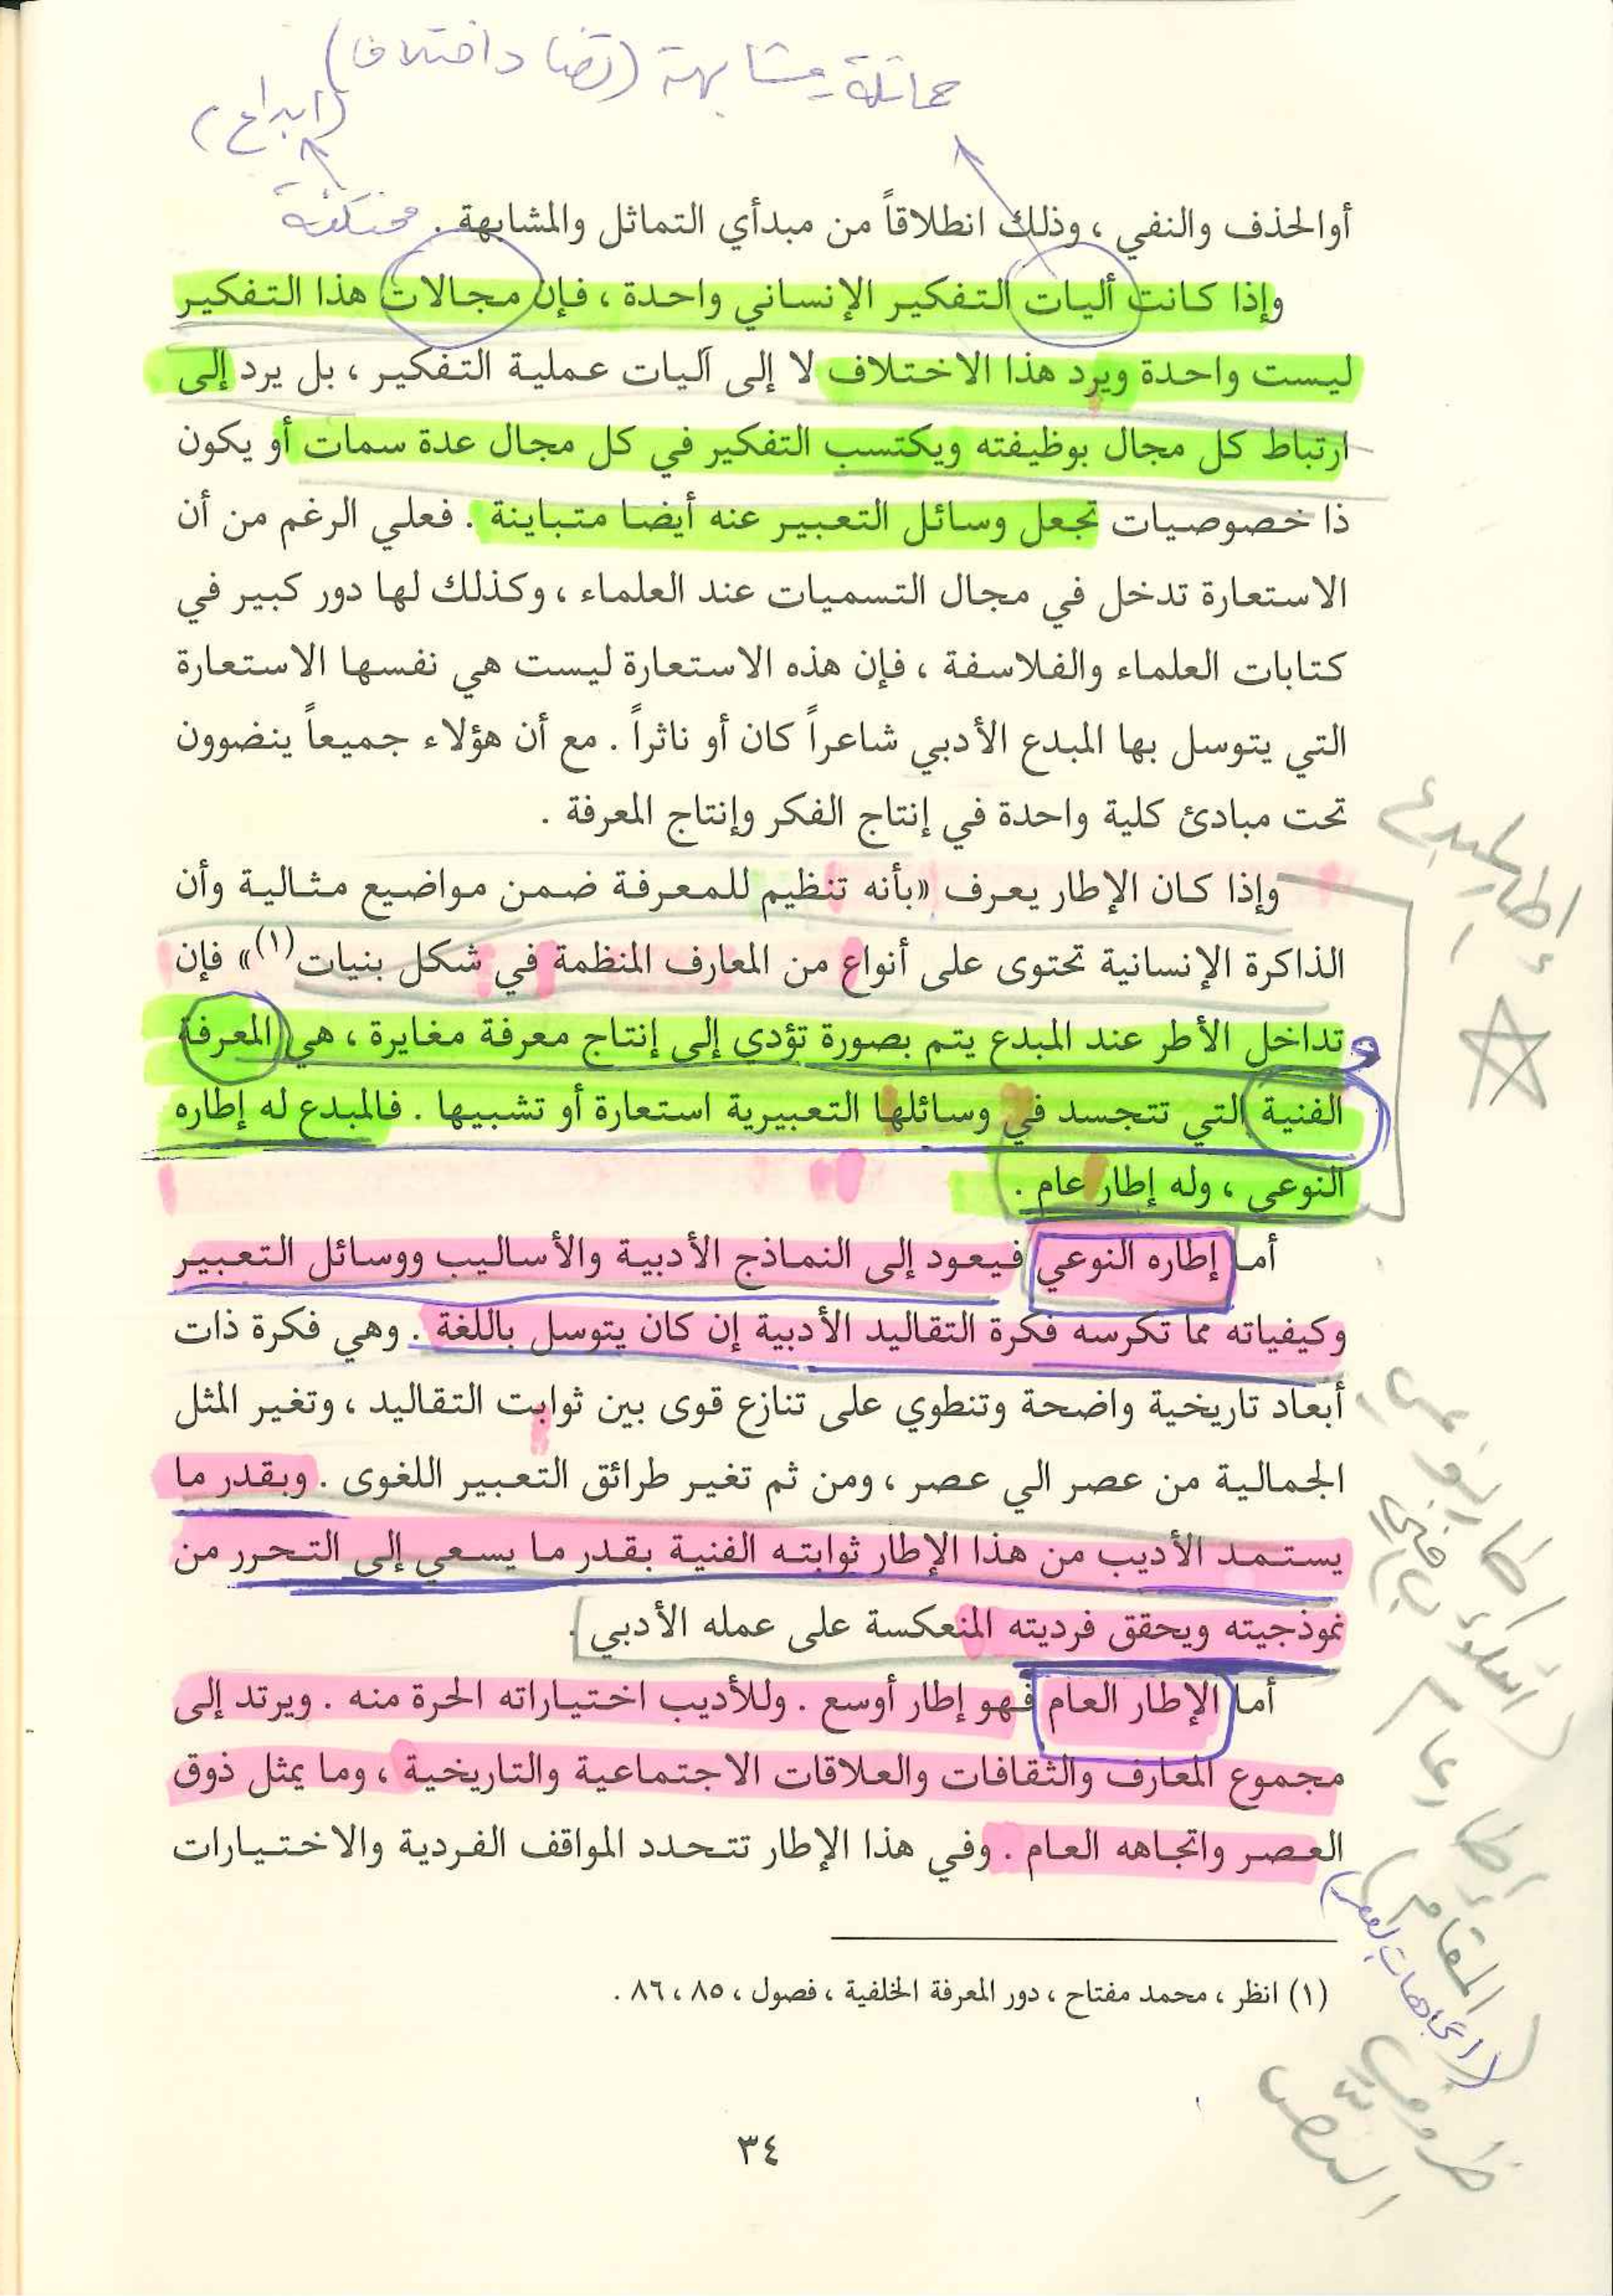 مماثلة مشابهة (تضاد اختلاف)
(ابداع)
أوالحذف والنفي ، وذلك انطلاقاً من مبدأي التماثل والمشابهة . مختلفة
وإذا كانت أليات التفكير الإنساني واحدة ، فإن مجالات هذا التفكير
ليست واحدة ويرد هذا الاختلاف لا إلى آليات عملية التفكير ، بل يرد إلى
ارتباط كل مجال بوظيفته ويكتسب التفكير في كل مجال عدة سمات أو يكون
ذا خصوصيات تجعل وسائل التعبير عنه أيضا متباينة . فعلي الرغم من أن
الاستعارة تدخل في مجال التسميات عند العلماء ، وكذلك لها دور كبير في
كتابات العلماء والفلاسفة ، فإن هذه الاستعارة ليست هي نفسها الاستعارة
التي يتوسل بها المبدع الأدبي شاعراً كان أو ناثراً . مع أن هؤلاء جميعاً ينضوون
تحت مبادئ كلية واحدة في إنتاج الفكر وإنتاج المعرفة .
وإذا كان الإطار يعرف «بأنه تنظيم للمعرفة ضمن مواضيع مثالية وأن
الذاكرة الإنسانية تحتوى على أنواع من المعارف المنظمة في شكل بنيات(١)» فإن
تداخل الأطر عند المبدع يتم بصورة تؤدي إلى إنتاج معرفة مغايرة ، هي المعرفة
الفنية التي تتجسد في وسائلها التعبيرية استعارة أو تشبيها . فالمبدع له إطاره
النوعى ، وله إطار عام .
أما إطاره النوعي فيعود إلى النماذج الأدبية والأساليب ووسائل التعبير
وكيفياته مما تكرسه فكرة التقاليد الأدبية إن كان يتوسل باللغة . وهي فكرة ذات
أبعاد تاريخية واضحة وتنطوي على تنازع قوى بين ثوابت التقاليد ، وتغير المثل
الجمالية من عصر الي عصر ، ومن ثم تغير طرائق التعبير اللغوى . وبقدر ما
يستمد الأديب من هذا الإطار ثوابته الفنية بقدر ما يسعي إلى التحرر من
نموذجيته ويحقق فرديته المنعكسة على عمله الأدبي .
أما الإطار العام فهو إطار أوسع . وللأديب اختياراته الحرة منه . ويرتد إلى
مجموع المعارف والثقافات والعلاقات الاجتماعية والتاريخية ، وما يمثل ذوق
العصر واتجاهه العام . وفي هذا الإطار تتحدد المواقف الفردية والاختيارات
(١) انظر ، محمد مفتاح ، دور المعرفة الخلفية ، فصول ، ٨٥ ، ٨٦ .
٣٤
إطار المبدع
إطار النوعي
إطار عام
(المقام)
(اتجاهات العصر)
النص